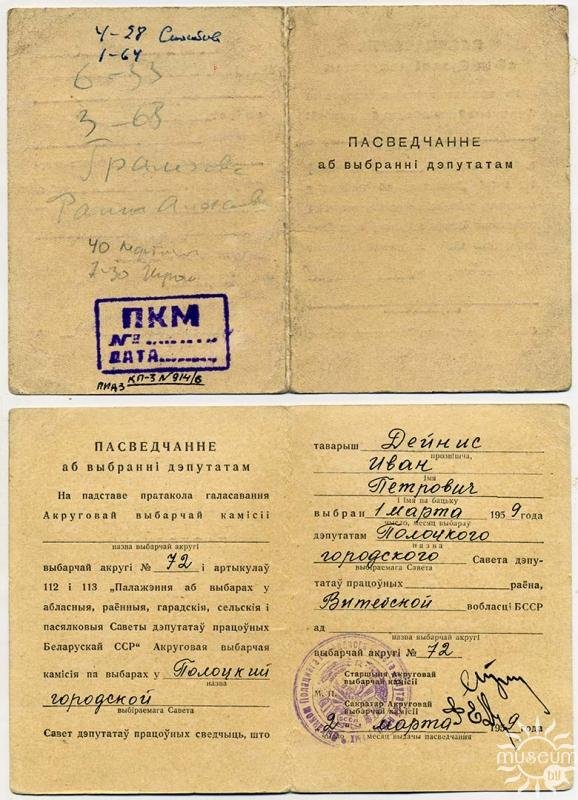 4-28
1-64
6-53
3-63
40
7-30
ПКМ
№
ДАТА
КП-3 №914/6
ПАСВЕДЧАННЕ
аб выбранні дэпутатам
ПАСВЕДЧАННЕ
аб выбранні дэпутатам
На падставе пратакола галасавання
Акруговай выбарчай камісіі
назва выбарчай акругі
выбарчай акругі № 72 і артыкулаў
112 і 113 „Палажэння аб выбарах у
абласныя, раённыя, гарадскія, сельскія і
пасялковыя Саветы дэпутатаў працоўных
Беларускай ССР“ Акруговая выбарчая
камісія па выбарах у Полоцкий
назва
городской
выбіраемага Савета
Савет дэпутатаў працоўных сведчыць, што
таварыш Дейнис
прозвішча,
Иван
імя
Петрович
і імя па бацьку
выбран 1 марта 1959 года
число, месяц выбараў
дэпутатам Полоцкого
назва
городского Савета дэпу-
выбіраемага Савета
татаў працоўных раёна,
Витебской вобласці БССР
ад
назва выбарчай акругі
выбарчай акругі № 72
Старшыня Акруговай
выбарчай камісіі
М. П.
Сакратар Акруговай
выбарчай камісіі
2 марта 1959
месяц выдачы пасведчання
museum
by